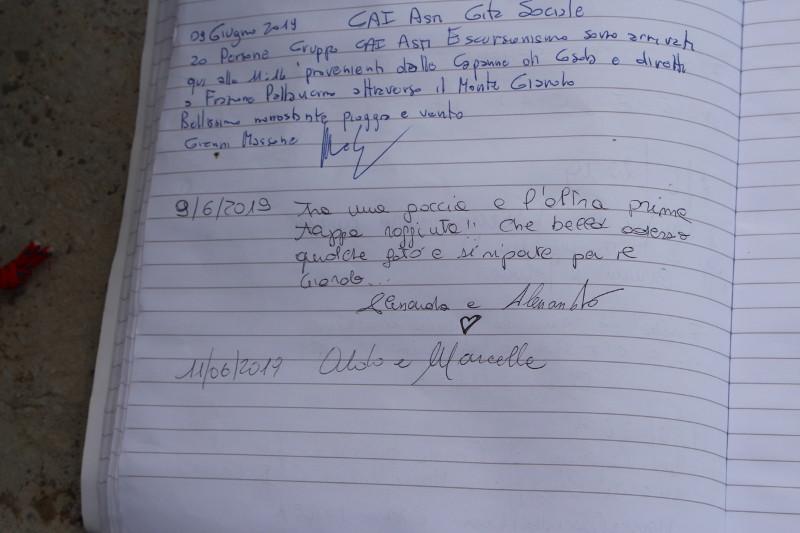 09 Giugno 2019 CAI Asti Gita Sociale
20 Persone Gruppo CAI Asti Escursionismo sono arrivati
qui alle provenienti dalle Capanne di Cosola e diretti
a Pallavicino attraverso il Monte Giarolo
Bellissimo nonostante pioggia e vento
Gianni Massone
9/6/2019 tra una goccia e l'altra prima
tappa raggiunta!! che bello adesso
qualche foto e si riparte per il
Giarolo...
e Alessandro
11/06/2019 Aldo e Marcella